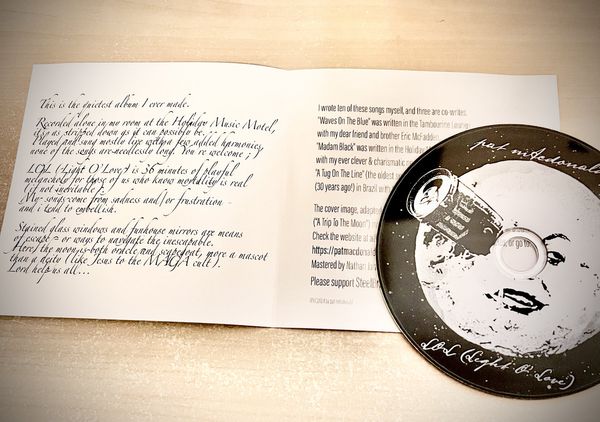 This is the quietest album I ever made.
Recorded alone in my room at the Holiday Music Motel,
it's as stripped down as it can possibly be.
Played and sung mostly live with a few added harmonies,
none of the songs are needlessly long. You're welcome ;
LOL (Light O'Love) is 36 minutes of playful
melancholy for those of us who know mortality is real
(if not inevitable).
My songs come from sadness and/or frustration -
and i tend to embellish.
Stained glass windows and funhouse mirrors are means
of escape - or ways to navigate the inescapable.
(for) the moon is both oracle and scapegoat, more a mascot
than a deity (like Jesus to the MAGA cult).
Lord help us all...
I wrote ten of these songs myself, and three are co-writes.
"Waves On The Blue" was written in the Tambourine
with my dear friend and brother Eric McFadden
"Madam Black" was written in the Holiday
with my ever clever & charismatic
"A Tug On The Line" (the oldest
(30 years ago!) in Brazil with
The cover image, adapted
("A Trip To The Moon")
Check the website at
https://patmacdonal
Mastered by Nathan
Please support Steel
or go to:
pat mAcdonald
LOL (Light O' Love)